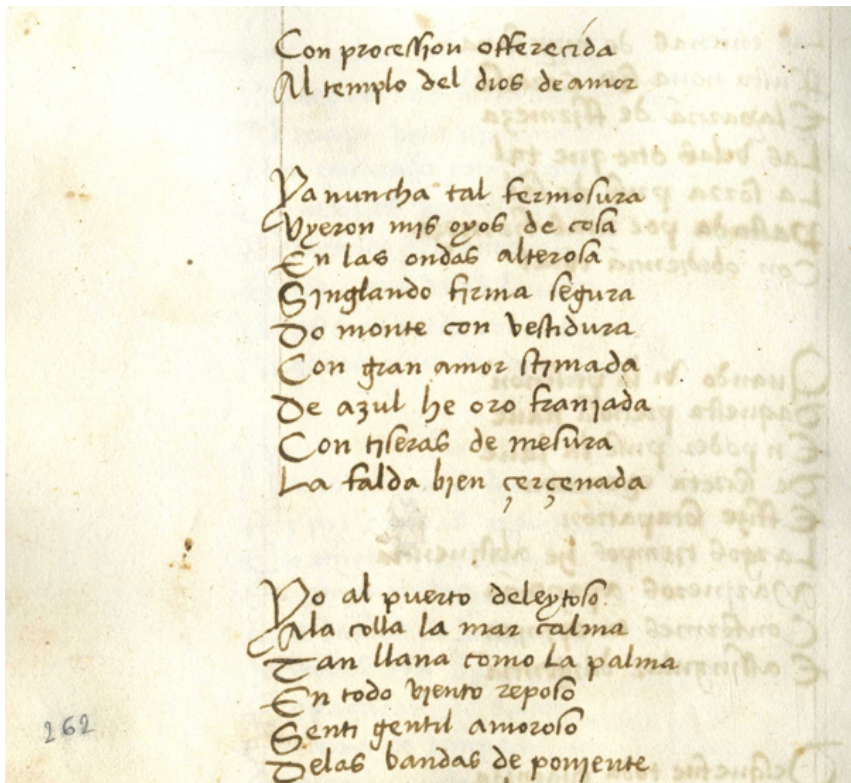 Con procession offerecida
Al templo del dios de amor
Ya nuncha tal fermosura
Vyeron mis oyos de cosa
En las ondas alterosa
Singlando firma segura
Do monte con vestidura
Con gran amor stimada
De azul he oro franjada
Con tiseras de mesura
La falda bien çerçenada
Yo al puerto deleytoso
Ala colla la mar calma
Tan llana como la palma
En todo viento reposo
Senti gentil amoroso
Delas bandas de poniente
262